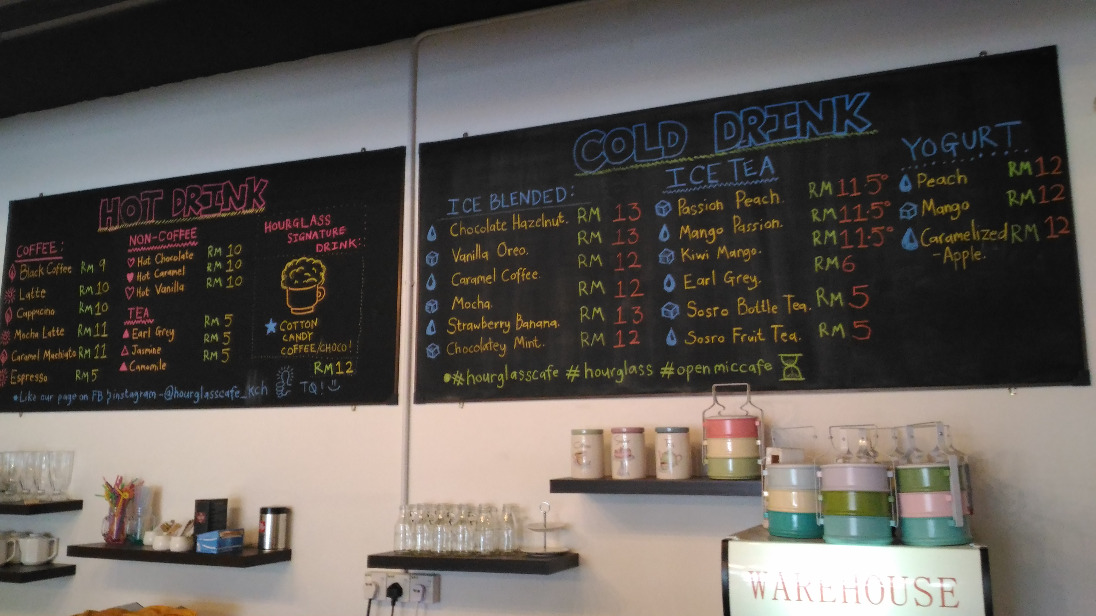 HOT DRINK
COFFEE:
Black Coffee RM 9
Latte RM 10
Cappucino RM 10
Mocha Latte RM 11
Caramel Machiato RM 11
Espresso RM 5
NON-COFFEE
Hot Chocolate RM 10
Hot Caramel RM 10
Hot Vanilla RM 10
TEA
Earl Grey RM 5
Jasmine RM 5
Camomile RM 5
HOURGLASS
SIGNATURE
DRINK:
COTTON
CANDY
COFFEE/CHOCO!
RM 12
Like our page on FB & instagram - @hourglasscafe_kch TQ!
COLD DRINK
ICE BLENDED:
Chocolate Hazelnut. RM 13
Vanilla Oreo. RM 13
Caramel Coffee. RM 12
Mocha. RM 12
Strawberry Banana. RM 13
Chocolatey Mint. RM 12
ICE TEA
Passion Peach. RM 11.5°
Mango Passion. RM 11.5°
Kiwi Mango. RM 11.5°
Earl Grey. RM 6
Sosro Bottle Tea. RM 5
Sosro Fruit Tea. RM 5
YOGURT
Peach RM 12
Mango RM 12
Caramelized RM 12
-Apple.
#hourglasscafe #hourglass #openmiccafe
WAREHOUSE